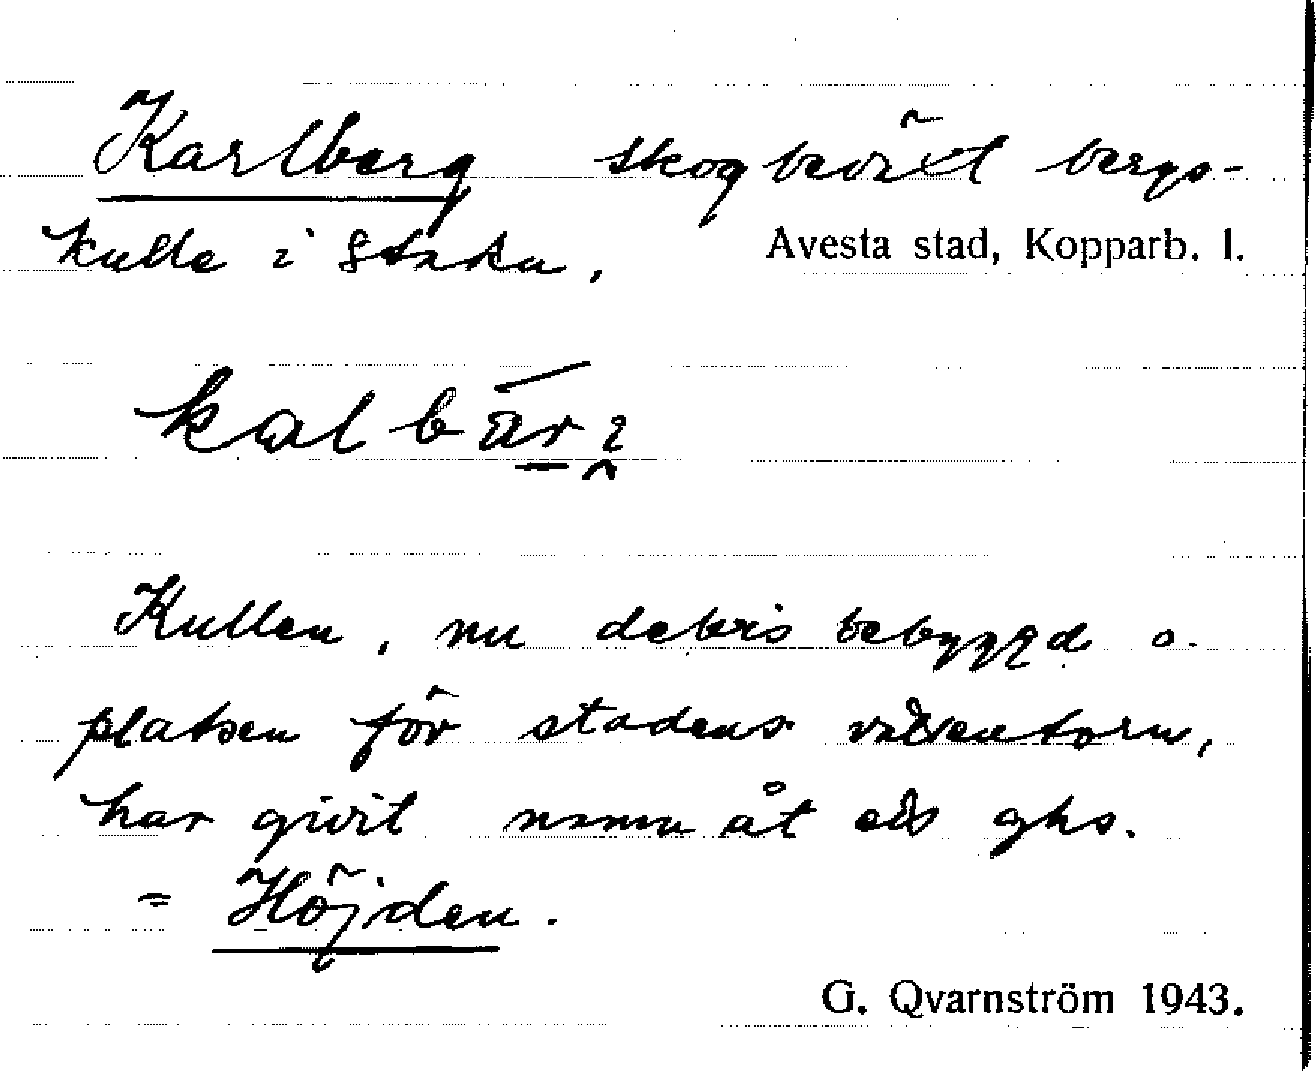 Karlberg skogbeväxt bergs-
kulle i Staku.
Avesta stad, Kopparb. l.
kalbär
Kullen, nu delvis bebyggd o.
platsen för stadens vattentorn,
har givit namn åt ett ghs.
= Höjden.
G. Qvarnström 1943.